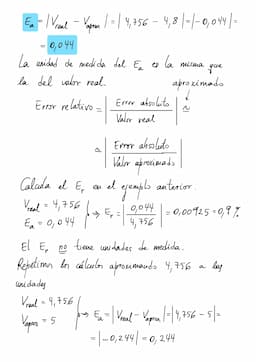 Ea = |Vreal − Vaprox| = |4,756 − 4,8| = |−0,044| =
= 0,044
La unidad de medida del Ea es la misma que
la del valor real.
aproximado
Error relativo = | Error absoluto / Valor real | ≃
≃ | Error absoluto / Valor aproximado |
Calcula el Er en el ejemplo anterior.
Vreal = 4,756
Ea = 0,044 } → Er = | 0,044 / 4,756 | = 0,00925 = 0,9%
El Er no tiene unidades de medida.
Repetimos los cálculos aproximando 4,756 a las
unidades
Vreal = 4,756
Vaprox = 5 } → Ea = |Vreal − Vaprox| = |4,756 − 5| =
= |−0,244| = 0,244